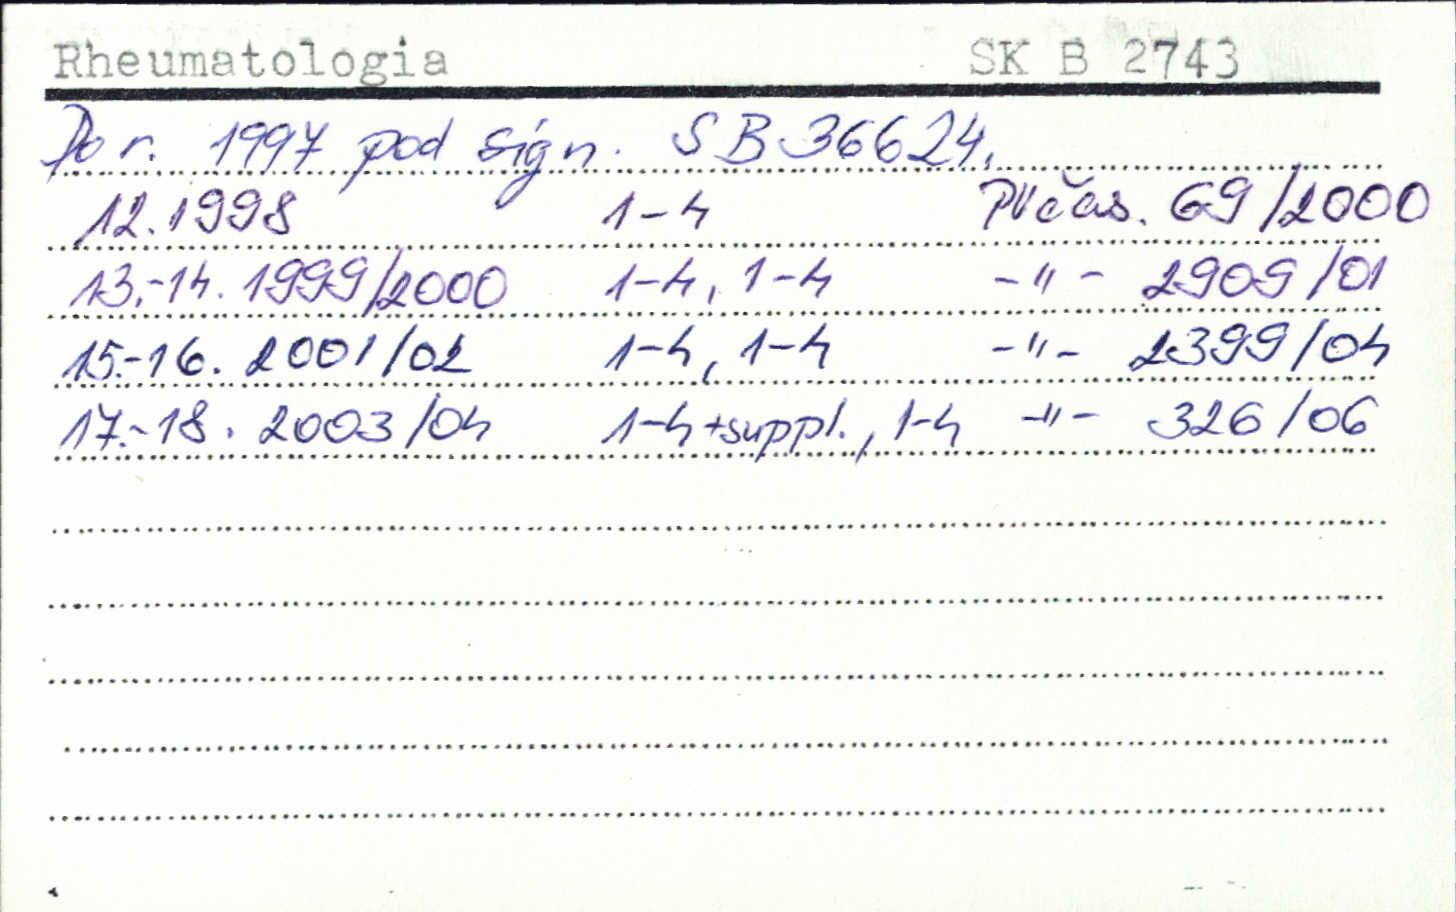 Rheumatologia SK B 2743
Do r. 1997 pod sign. SB 36624.
12.1998 1-4 PV čas. 69/2000
13.-14. 1999/2000 1-4, 1-4 -"- 2909/01
15.-16. 2001/02 1-4, 1-4 -"- 2399/04
17.-18. 2003/04 1-4+suppl., 1-4 -"- 326/06